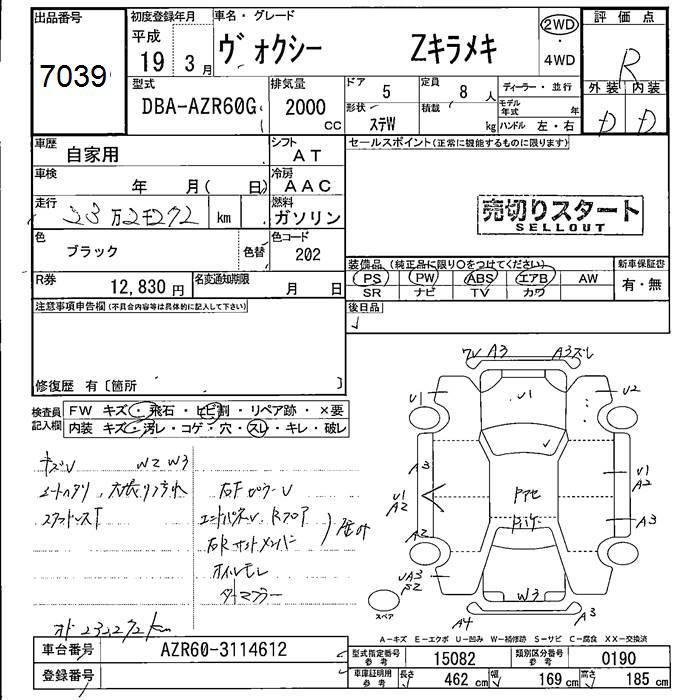 出品番号
7039
初度登録年月
平成
19年
3月
車名・グレード
ヴォクシー Zキラメキ
2WD
・
4WD
評価点
R
外装 内装
D D
型式
DBA-AZR60G
排気量
2000
CC
ドア
5
形状
ステW
定員
8人
積載
kg
ディーラー・並行
モデル年式 年
ハンドル 左・右
車歴
自家用
シフト
AT
車検
年 月( 日)
冷房
AAC
走行
23万2千272 km
燃料
ガソリン
色
ブラック
色替
色コード
202
R券
12,830円
名変通知期限
月 日
セールスポイント(正常に機能するものに限ります)
売切りスタート
SELLOUT
装備品(純正品に限り○をつけてください)
PS PW ABS エアB AW
SR ナビ TV カワ
新車保証書
有・無
注意事項申告欄(不具合内容等は具体的に記入して下さい)
後日品
修復歴 有〔箇所 〕
検査員
記入欄
FW キズ・飛石・ヒビ割・リペア跡・×要
内装 キズ・汚レ・コゲ・穴・スレ・キレ・破レ
キズU W2 W3
シートヘタリ、内張り汚れ
ステアリスレ
右FピラーU
エンドパネU、Rフロア
右Rサイドメンバー
オイルモレ
オド 232,272km
A3 A3
U1
U1
U2
A3
U1
A2
U1
A2
A2
A3
W3
A4
A3
スペア
A-キズ E-エクボ U-凹み W-補修跡 S-サビ C-腐食 XX-交換済
車台番号
AZR60-3114612
登録番号
型式指定番号
参考
15082
類別区分番号
参考
0190
車庫証明用
参考
長さ
462 cm
幅
169 cm
高さ
185 cm